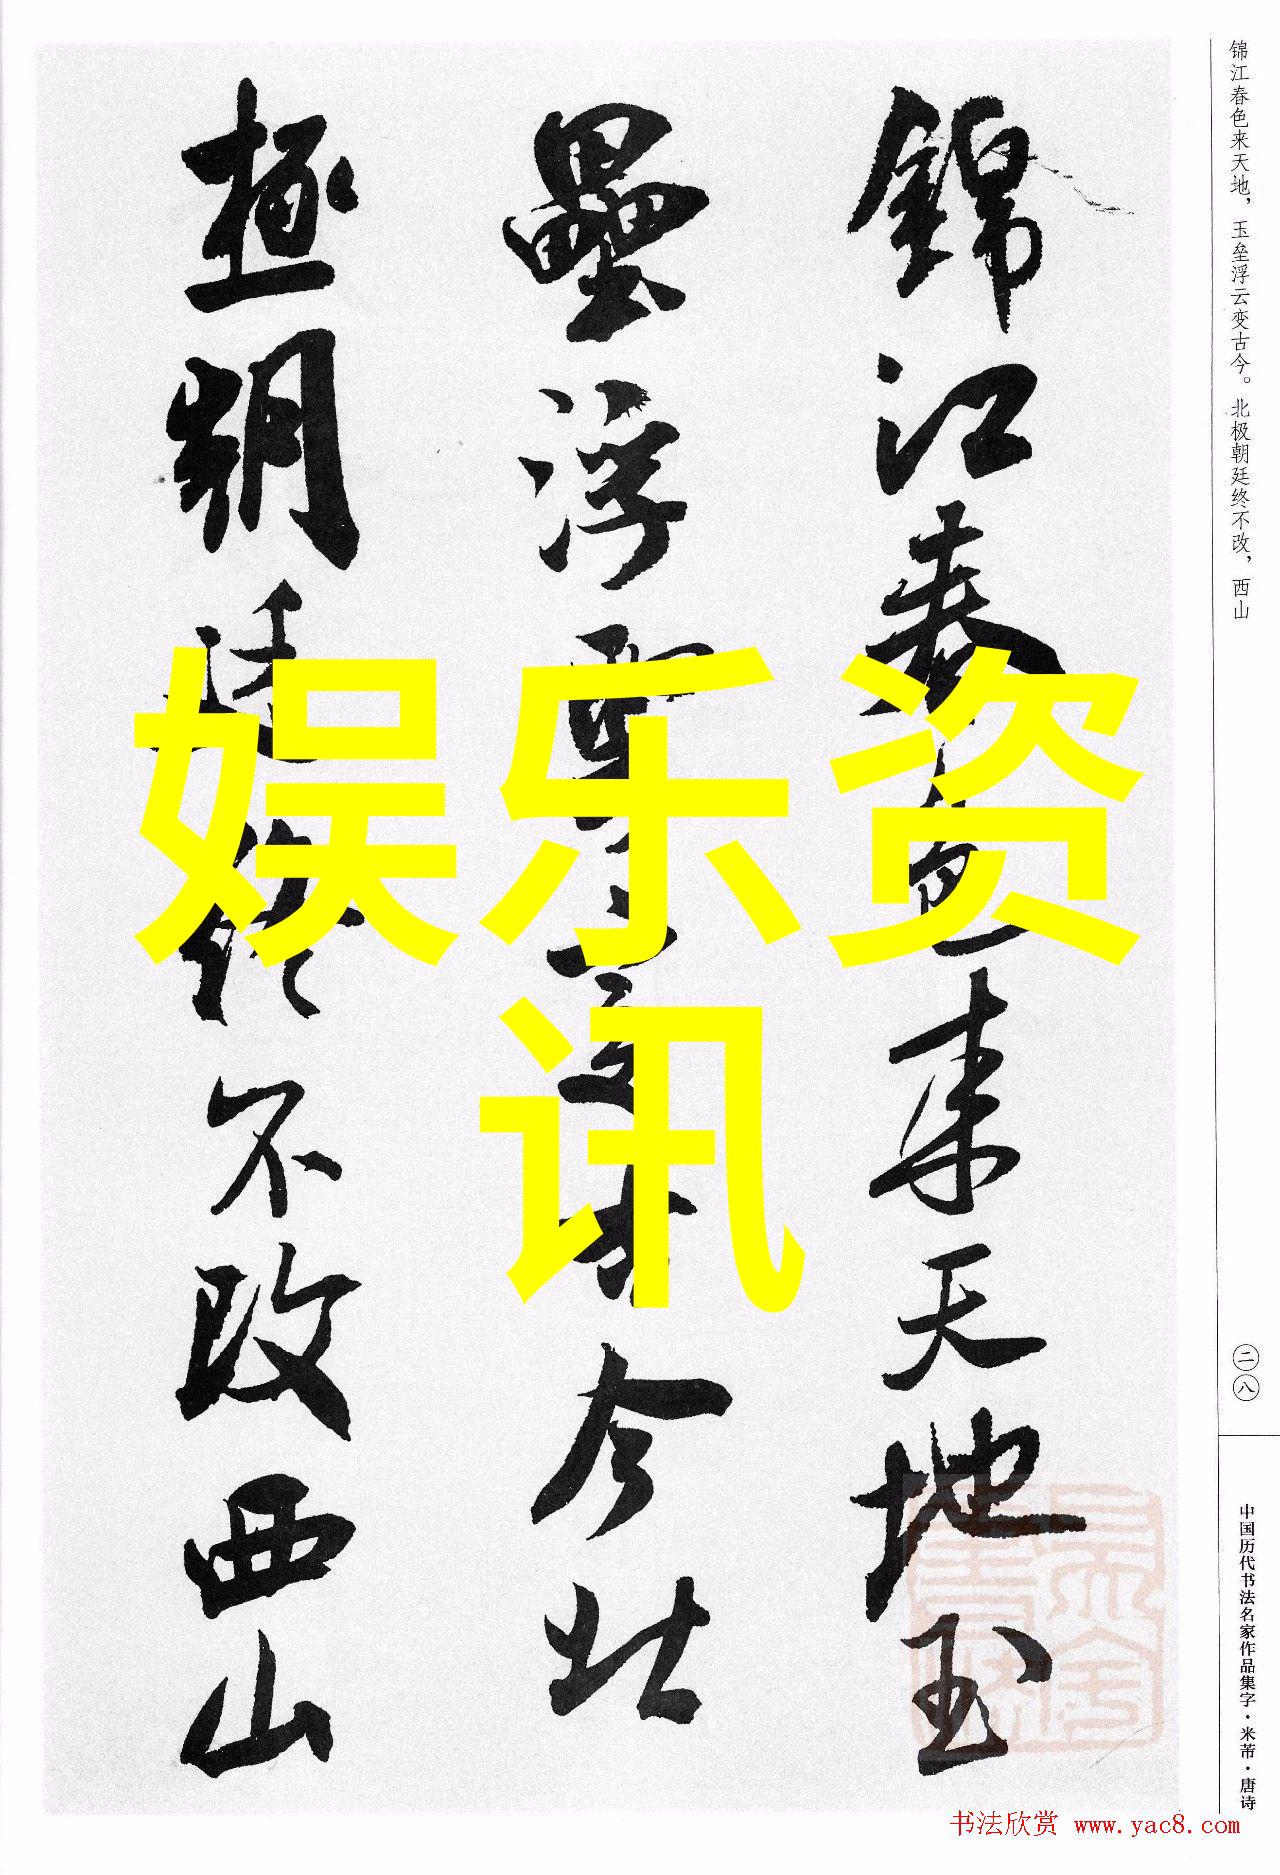 锦江春色来天地，玉垒浮云变古今。北极朝廷终不改，西山
錦江春色来天地玉
壘浮雲變古今北
極朝廷終不改西山
娱乐资
讯
二八
中国历代书法名家作品集字·米芾·唐诗
书法欣赏 www.yac8.com